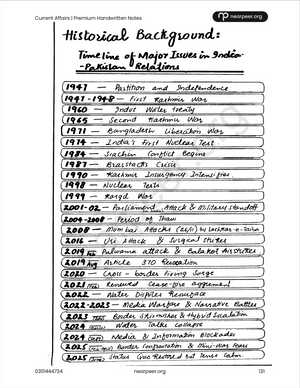 Current Affairs | Premium Handwritten Notes
nearpeer.org
Historical Background:
Timeline of Major Issues in India
-Pakistan Relations
1947 — Partition and Independence
1947-1948 — First Kashmir War
1960 — Indus Water Treaty
1965 — Second Kashmir War
1971 — Bangladesh Liberation War
1974 — India's First Nuclear Test
1984 — Siachin Conflict Begins
1987 — Brasstacks Crisis
1990 — Kashmir Insurgency Intensifies
1998 — Nuclear Tests
1999 — Kargil War
2001-02 — Parliament Attack & Military Standoff
2004-2008 — Period of Thaw
2008 — Mumbai Attacks (26/11) by Lashkar-e-Taiba
2016 — Uri Attack & Surgical strikes
2019 Feb Pulwama attack & Balakot Airstrikes
2019 Aug Article 370 Revocation
2020 — Cross-border Firing Surge
2021 Renewed Cease-fire agreement
2022 — Water Disputes Resurface
2022-2023 — Media Warfare & Narrative Battles
2023 Border Skirmishes & Hybrid Escalation
2024 Water Talks Collapse
2024 Media & Information Blockades
2025 Border Confrontation & Mini-War Fears
2025 Status Quo Restored but Tense Calm
0311444734
nearpeer.org
131